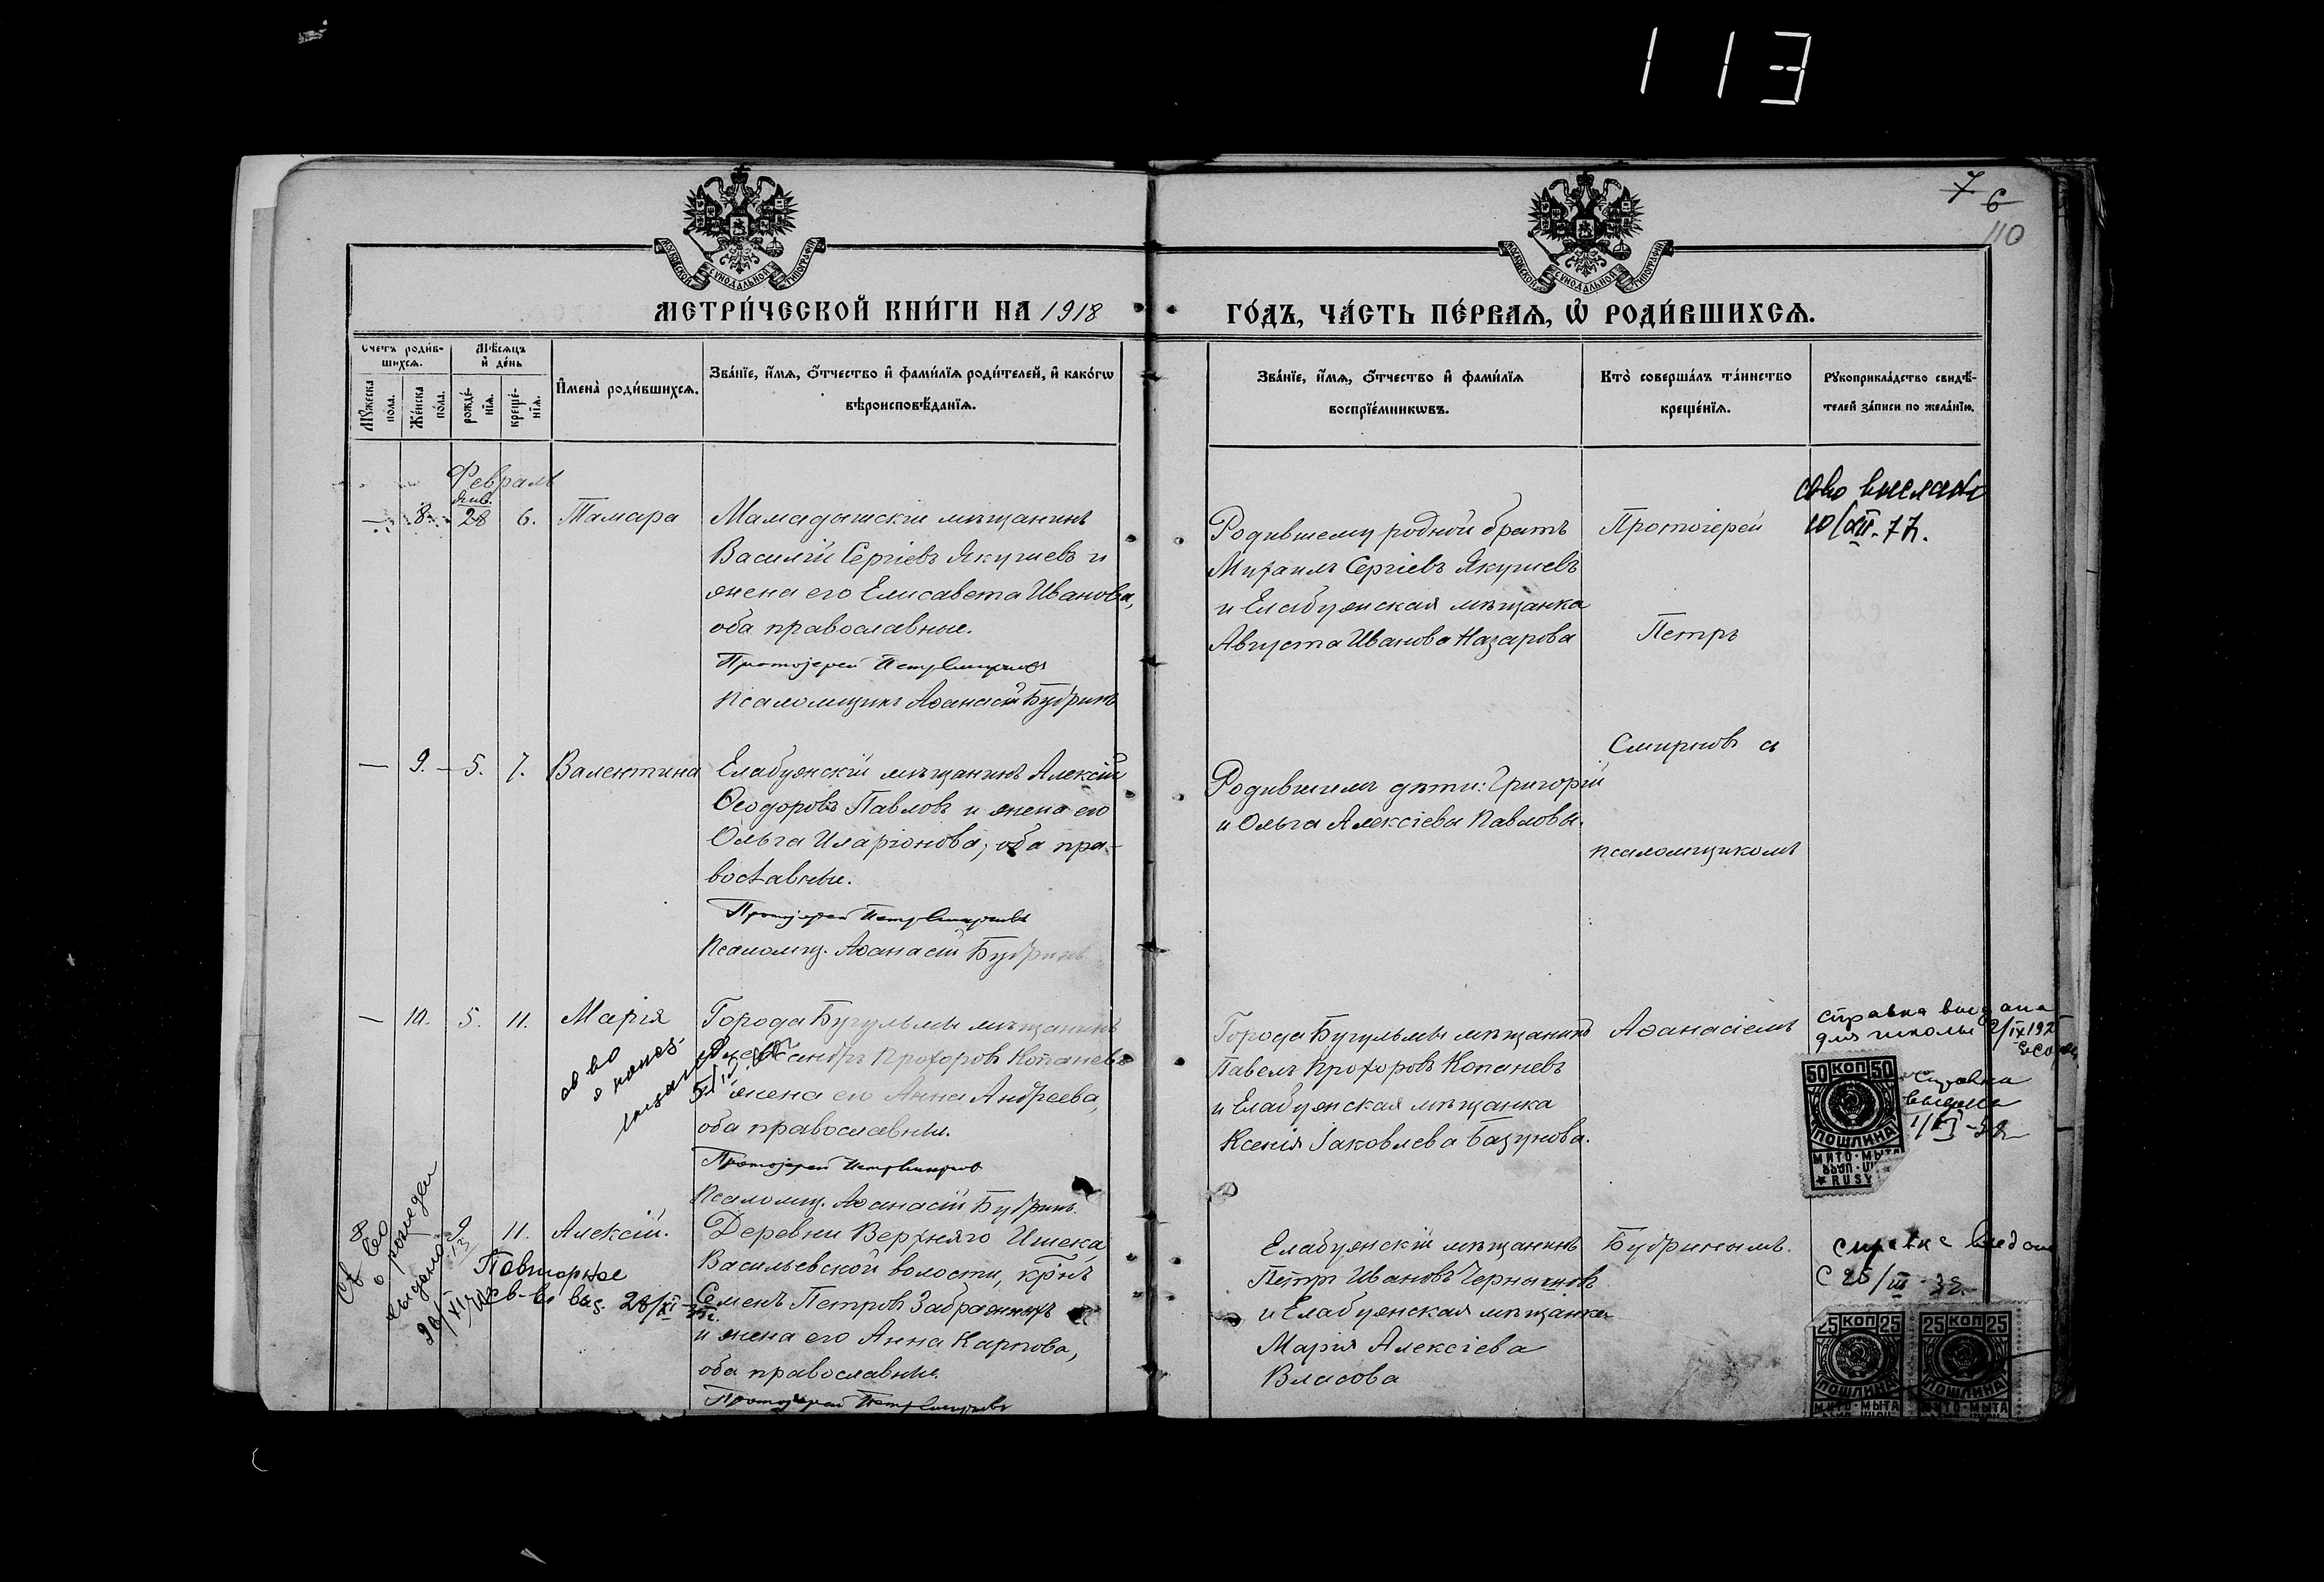 113
7 6
110
МОСКОВСКОЙ СѴНОДАЛЬНОЙ ТИПОГРАФІИ
МОСКОВСКОЙ СѴНОДАЛЬНОЙ ТИПОГРАФІИ
МЕТРИ́ЧЕСКОЙ КНИ́ГИ НА 1918
ГО́ДЪ, ЧА́СТЬ ПЕ́РВАЯ, Ѡ РОДИ́ВШИХСЯ.
Счетъ роди́в-
шихся.
Мѣ́сяцъ
и҆ де́нь
Мꙋ́жеска
по́ла.
Же́нска
по́ла.
рожде́-
нїя.
креще́-
нїя.
И҆мена̀ роди́вшихся.
Зва́нїе, и҆́мя, ѻ҆́тчество и҆ фами́лїя роди́телей, и҆ како́гѡ
вѣроисповѣ́данїя.
Зва́нїе, и҆́мя, ѻ҆́тчество и҆ фами́лїя
воспрїе́мникѡвъ.
Кто̀ соверша́лъ та́инство
креще́нїя.
Рꙋкоприкла́дство свидѣ́-
телей за́писи по жела́нїю.
Февраль
янв.
— 8. 28 6. Тамара
Мамадышскіи мѣщанинъ
Василій Сергіевъ Якушевъ и
жена его Елисавета Иванова,
оба православные.
Протоіерей Петръ Смирновъ
Псаломщикъ Аѳанасій Бубринъ
Родившему родной братъ
Михаилъ Сергіевъ Якушевъ
и Елабужская мѣщанка
Августа Иванова Назарова
Протоіерей
Петръ
Смирновъ съ
псаломщикомъ
св-во выслано
10/XII-77.
— 9. 5. 7. Валентина
Елабужскій мѣщанинъ Алексій
Ѳеодоровъ Павловъ и жена его
Ольга Иларіонова, оба пра-
вославные.
Протоіерей Петръ Смирновъ
Псаломщ. Аѳанасій Бубринъ
Родившимъ дѣти: Григорій
и Ольга Алексіевы Павловы.
— 10. 5. 11. Марія
Города Бугульмы мѣщанинъ
Александръ Прохоровъ Копаневъ
жена его Анна Андреева,
оба православные.
Протоіерей Петръ Смирновъ
Псаломщ. Аѳанасій Бубринъ.
Города Бугульмы мѣщанинъ
Павелъ Прохоровъ Копаневъ
и Елабужская мѣщанка
Ксенія Іаковлева Базунова.
Аѳанасіемъ
справка выдана
для школы
50 КОП 50
ПОШЛИНА
МИТО·МЫТА
RUSY
справка
выдана
8 11. Алексій.
Св-во
о рожден
выдано
Повторное
св-во выд. 28/XI
Деревни Верхняго Ишека,
Васильевской волости, кр-нъ
Семенъ Петровъ Забражныхъ
и жена его Анна Карпова,
оба православные.
Протоіерей Петръ Смирновъ
Елабужскій мѣщанинъ
Петръ Ивановъ Черныхновъ
и Елабужская мѣщанка
Марія Алексіева
Власова
Бубринымъ.
справка выдана
25/III-32.
25 КОП 25
ПОШЛИНА
МИТО·МЫТА
25 КОП 25
ПОШЛИНА
МИТО·МЫТА